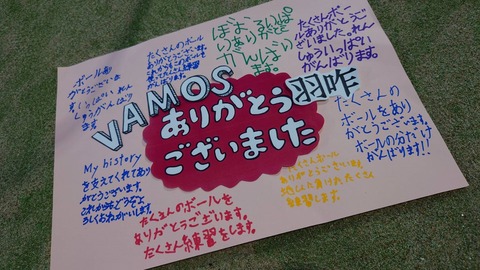 ボール
がとうございま
たくさんのボール
ありがとうございます。
がんばります。
ぼおるいっぱい
ありがとう
がんばり
ます。
たくさんボー
ルありがとうご
ざいました。れん
しゅういっぱい
がんばります。
VAMOS
羽咋
ありがとう
ございました
たくさんの
ボールをあり
がとうございます。
ボールの分だけ
がんばります!!
My history
を支えてくれてあり
がとうございます。
これからもどうぞよ
ろしくおねがいします。
たくさんのボールを
ありがとうございます。
たくさん練習をします。
たくさんボール
ありがとうございます。
練習します。